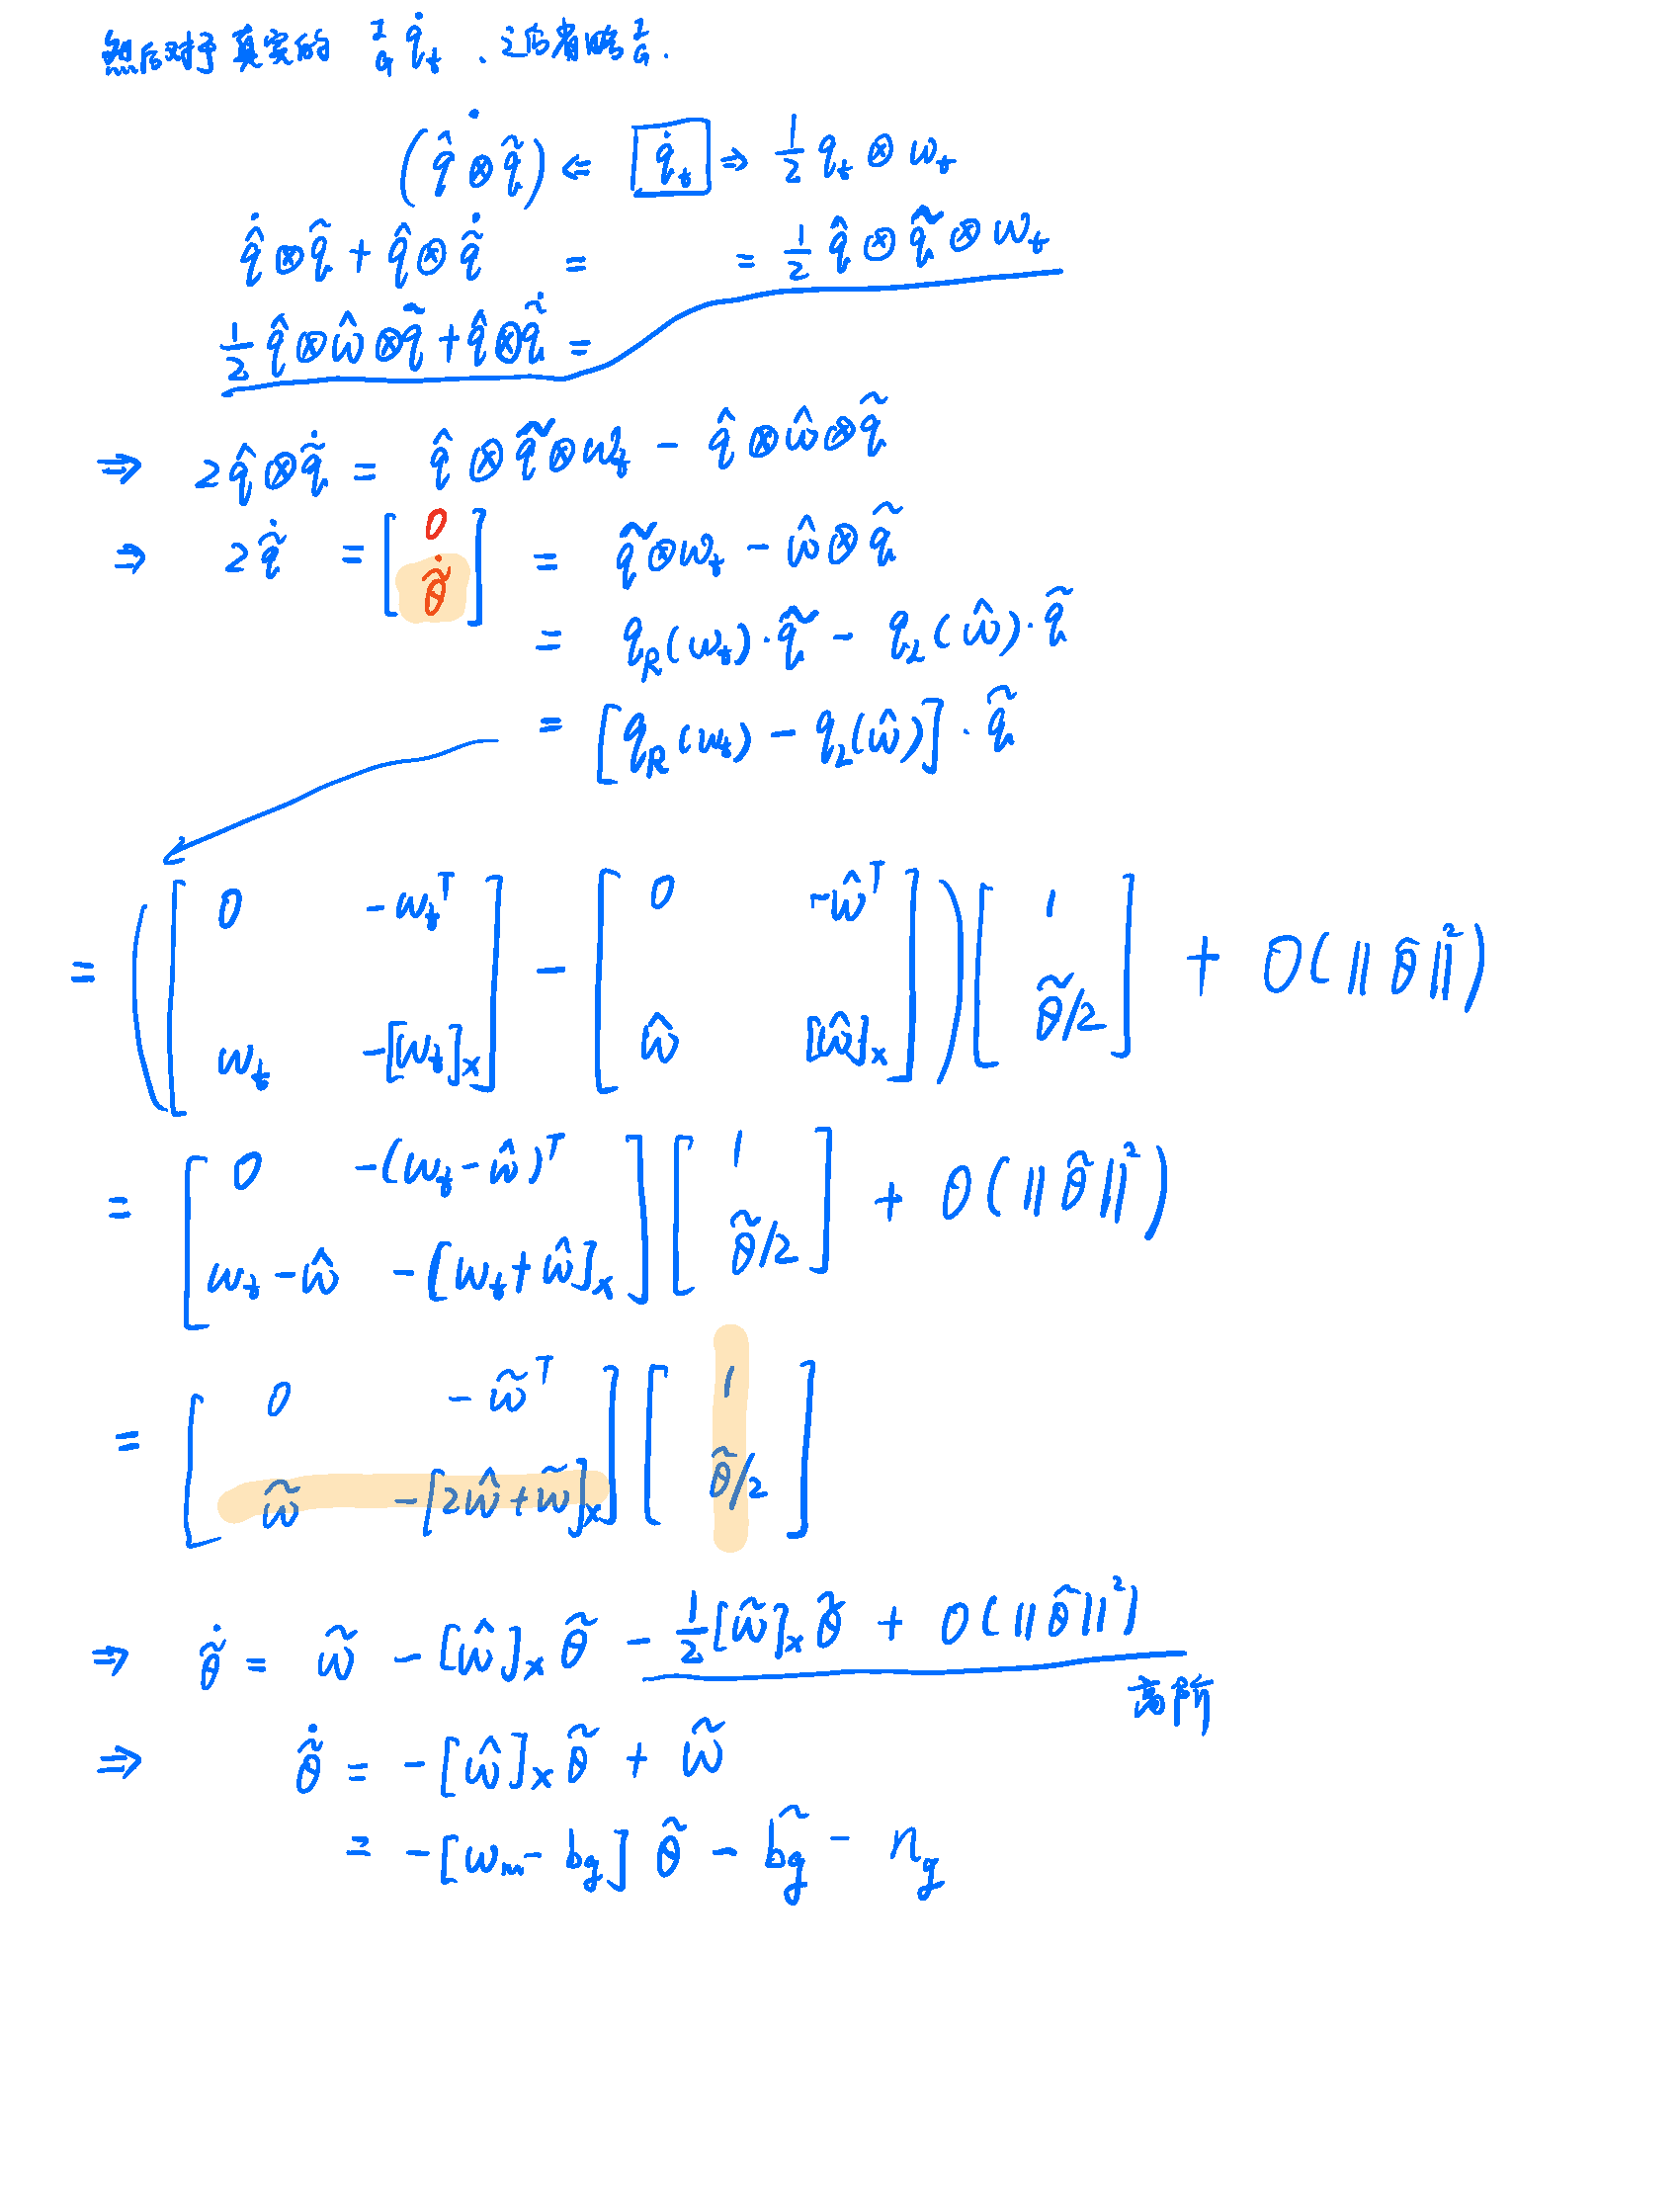 然后对于真实的 ᴵ_G q̇_t . 之后省略 ᴵ_G .
(q̂ ⊗ q̃)˙ ⇐ q̇_t ⇒ 1/2 q_t ⊗ w_t
q̂˙ ⊗ q̃ + q̂ ⊗ q̃˙ = = 1/2 q̂ ⊗ q̃ ⊗ w_t
1/2 q̂ ⊗ ŵ ⊗ q̃ + q̂ ⊗ q̃˙ =
⇒ 2 q̂ ⊗ q̃˙ = q̂ ⊗ q̃ ⊗ w_t - q̂ ⊗ ŵ ⊗ q̃
⇒ 2 q̃˙ = [ 0 ; θ̃˙ ] = q̃ ⊗ w_t - ŵ ⊗ q̃
= q_R(w_t) · q̃ - q_L(ŵ) · q̃
= [q_R(w_t) - q_L(ŵ)] · q̃
= ( [ 0 -w_t^T ; w_t -[w_t]_x ] - [ 0 -ŵ^T ; ŵ [ŵ]_x ] ) [ 1 ; θ̃/2 ] + O(||θ̃||²)
= [ 0 -(w_t - ŵ)^T ; w_t - ŵ -[w_t + ŵ]_x ] [ 1 ; θ̃/2 ] + O(||θ̃||²)
= [ 0 -w̃^T ; w̃ -[2ŵ + w̃]_x ] [ 1 ; θ̃/2 ]
⇒ θ̃˙ = w̃ - [ŵ]_x θ̃ - 1/2 [w̃]_x θ̃ + O(||θ̃||²)
高阶
⇒ θ̃˙ = -[ŵ]_x θ̃ + w̃
= -[w_m - b_g] θ̃ - b̃_g - n_g